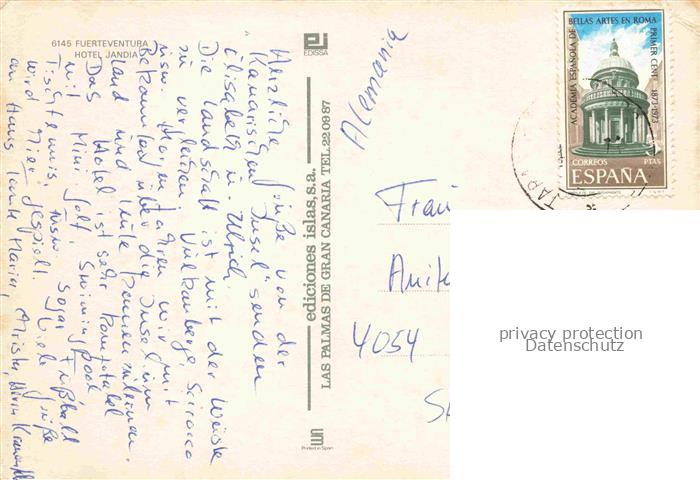 6145 FUERTEVENTURA
HOTEL JANDIA
EDISSA
Herzliche Grüße von der
Kanarischen Insel senden
Elisabeth u. Ulrich.
Die Landschaft ist mit der Weiske
zu vergleichen. Vulkanberge, Scirocco
usw. Morgen fahren wir mit
Bekannten über die Insel um
Land und Leute kennenzulernen.
Das Hotel ist sehr komfortabel
mit Mini-Golf, Swimingpool
Tischtennis, usw. Sogar Fußball
wird hier gespielt. Viele Grüße
an Hans, Maria,
ediciones islas, s.a.
LAS PALMAS DE GRAN CANARIA TEL. 220987
Printed in Spain
Alemania
Frau
4054
ACADEMIA ESPAÑOLA DE
BELLAS ARTES EN ROMA
PRIMER CENT° 1873-1973
CORREOS
1 PTAS
ESPAÑA
privacy protection
Datenschutz